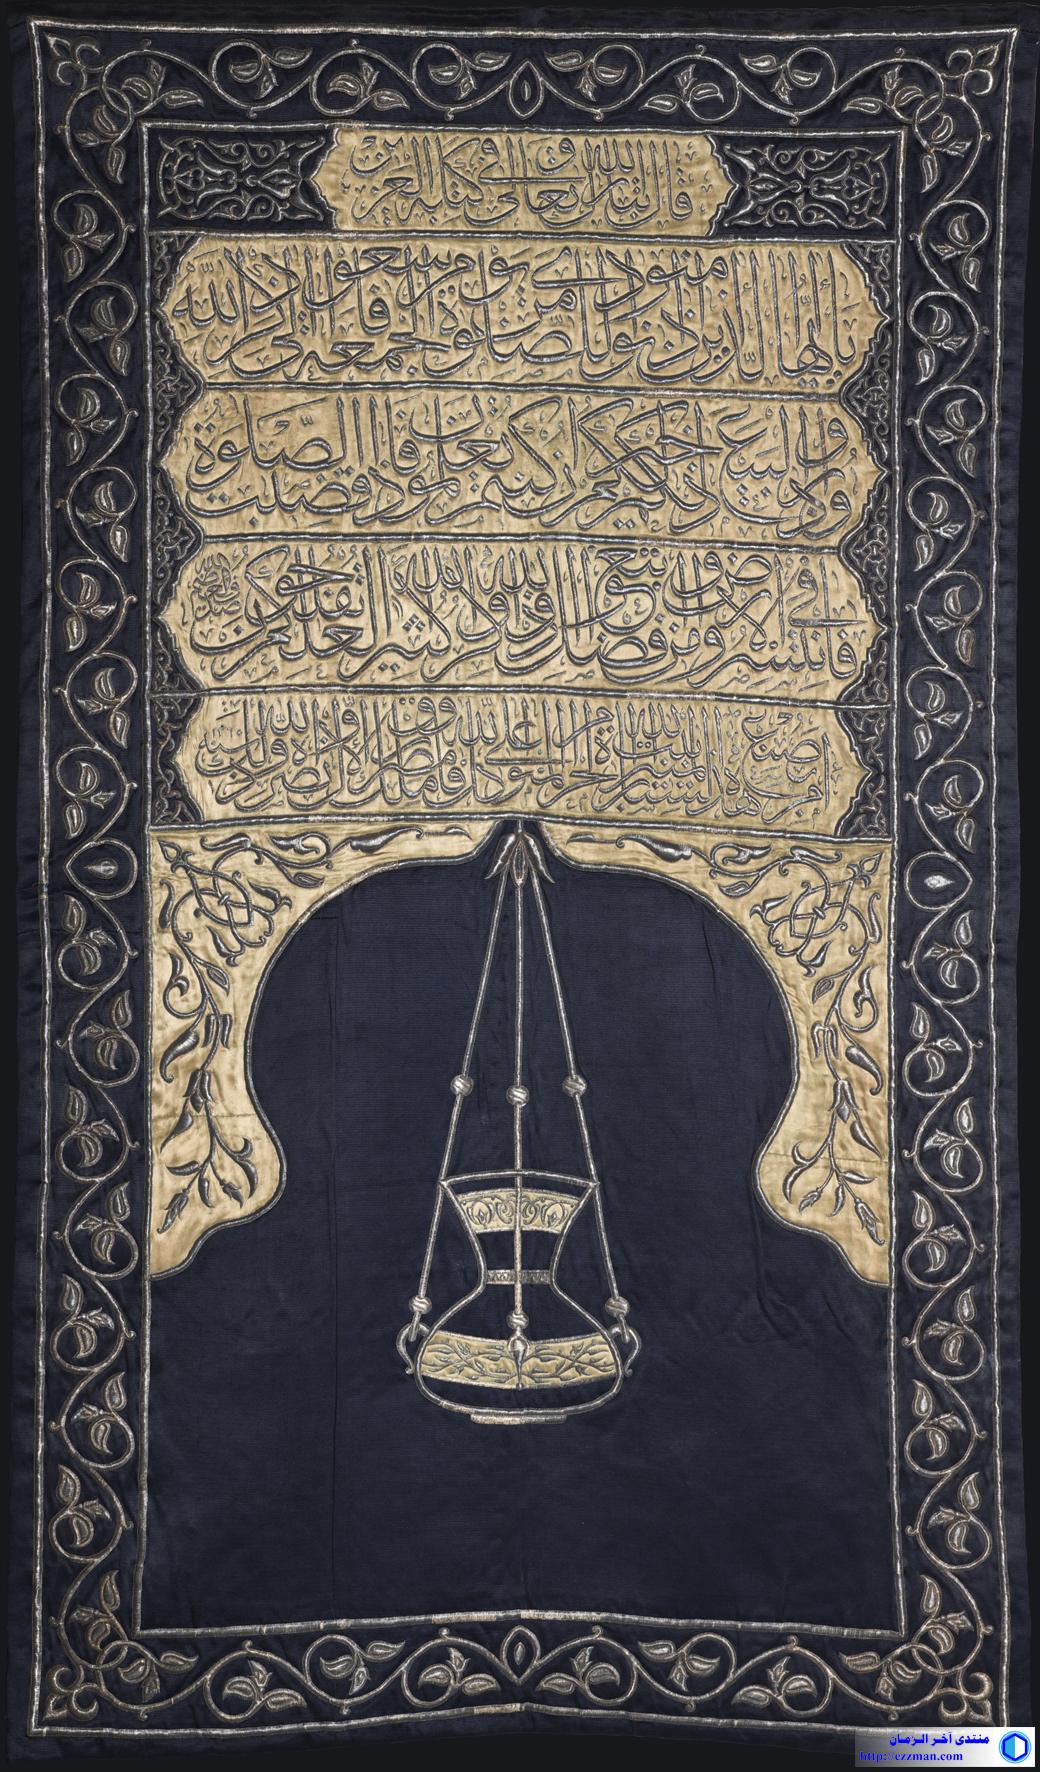 قال الله تبارك وتعالى في كتابه العزيز
يا أيها الذين آمنوا إذا نودي للصلوة من يوم الجمعة فاسعوا إلى ذكر الله
وذروا البيع ذلكم خير لكم إن كنتم تعلمون فإذا قضيت الصلوة
فانتشروا في الأرض وابتغوا من فضل الله واذكروا الله كثيرا لعلكم تفلحون صدق الله العظيم
أمر بصنع هذه المتوكل على الله
منتدى آخر الزمان
http://ezzman.com